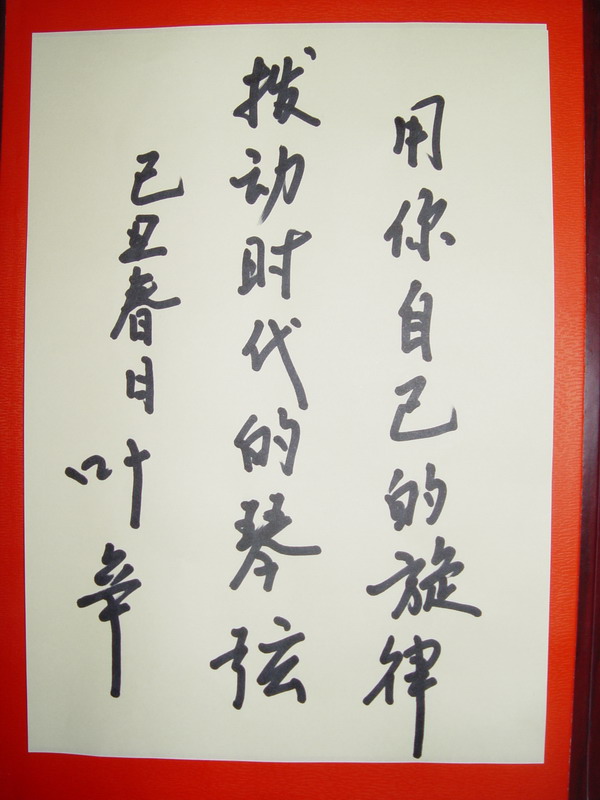 用你自己的旋律
拨动时代的琴弦
己丑春日
叶辛